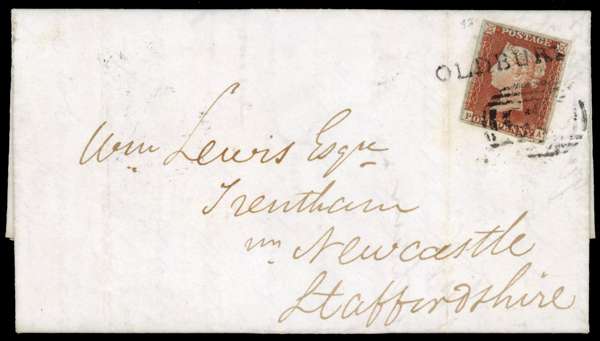 POSTAGE
OLDBURY
Wm Lewis Esqre
Trentham
nr Newcastle
Staffordshire